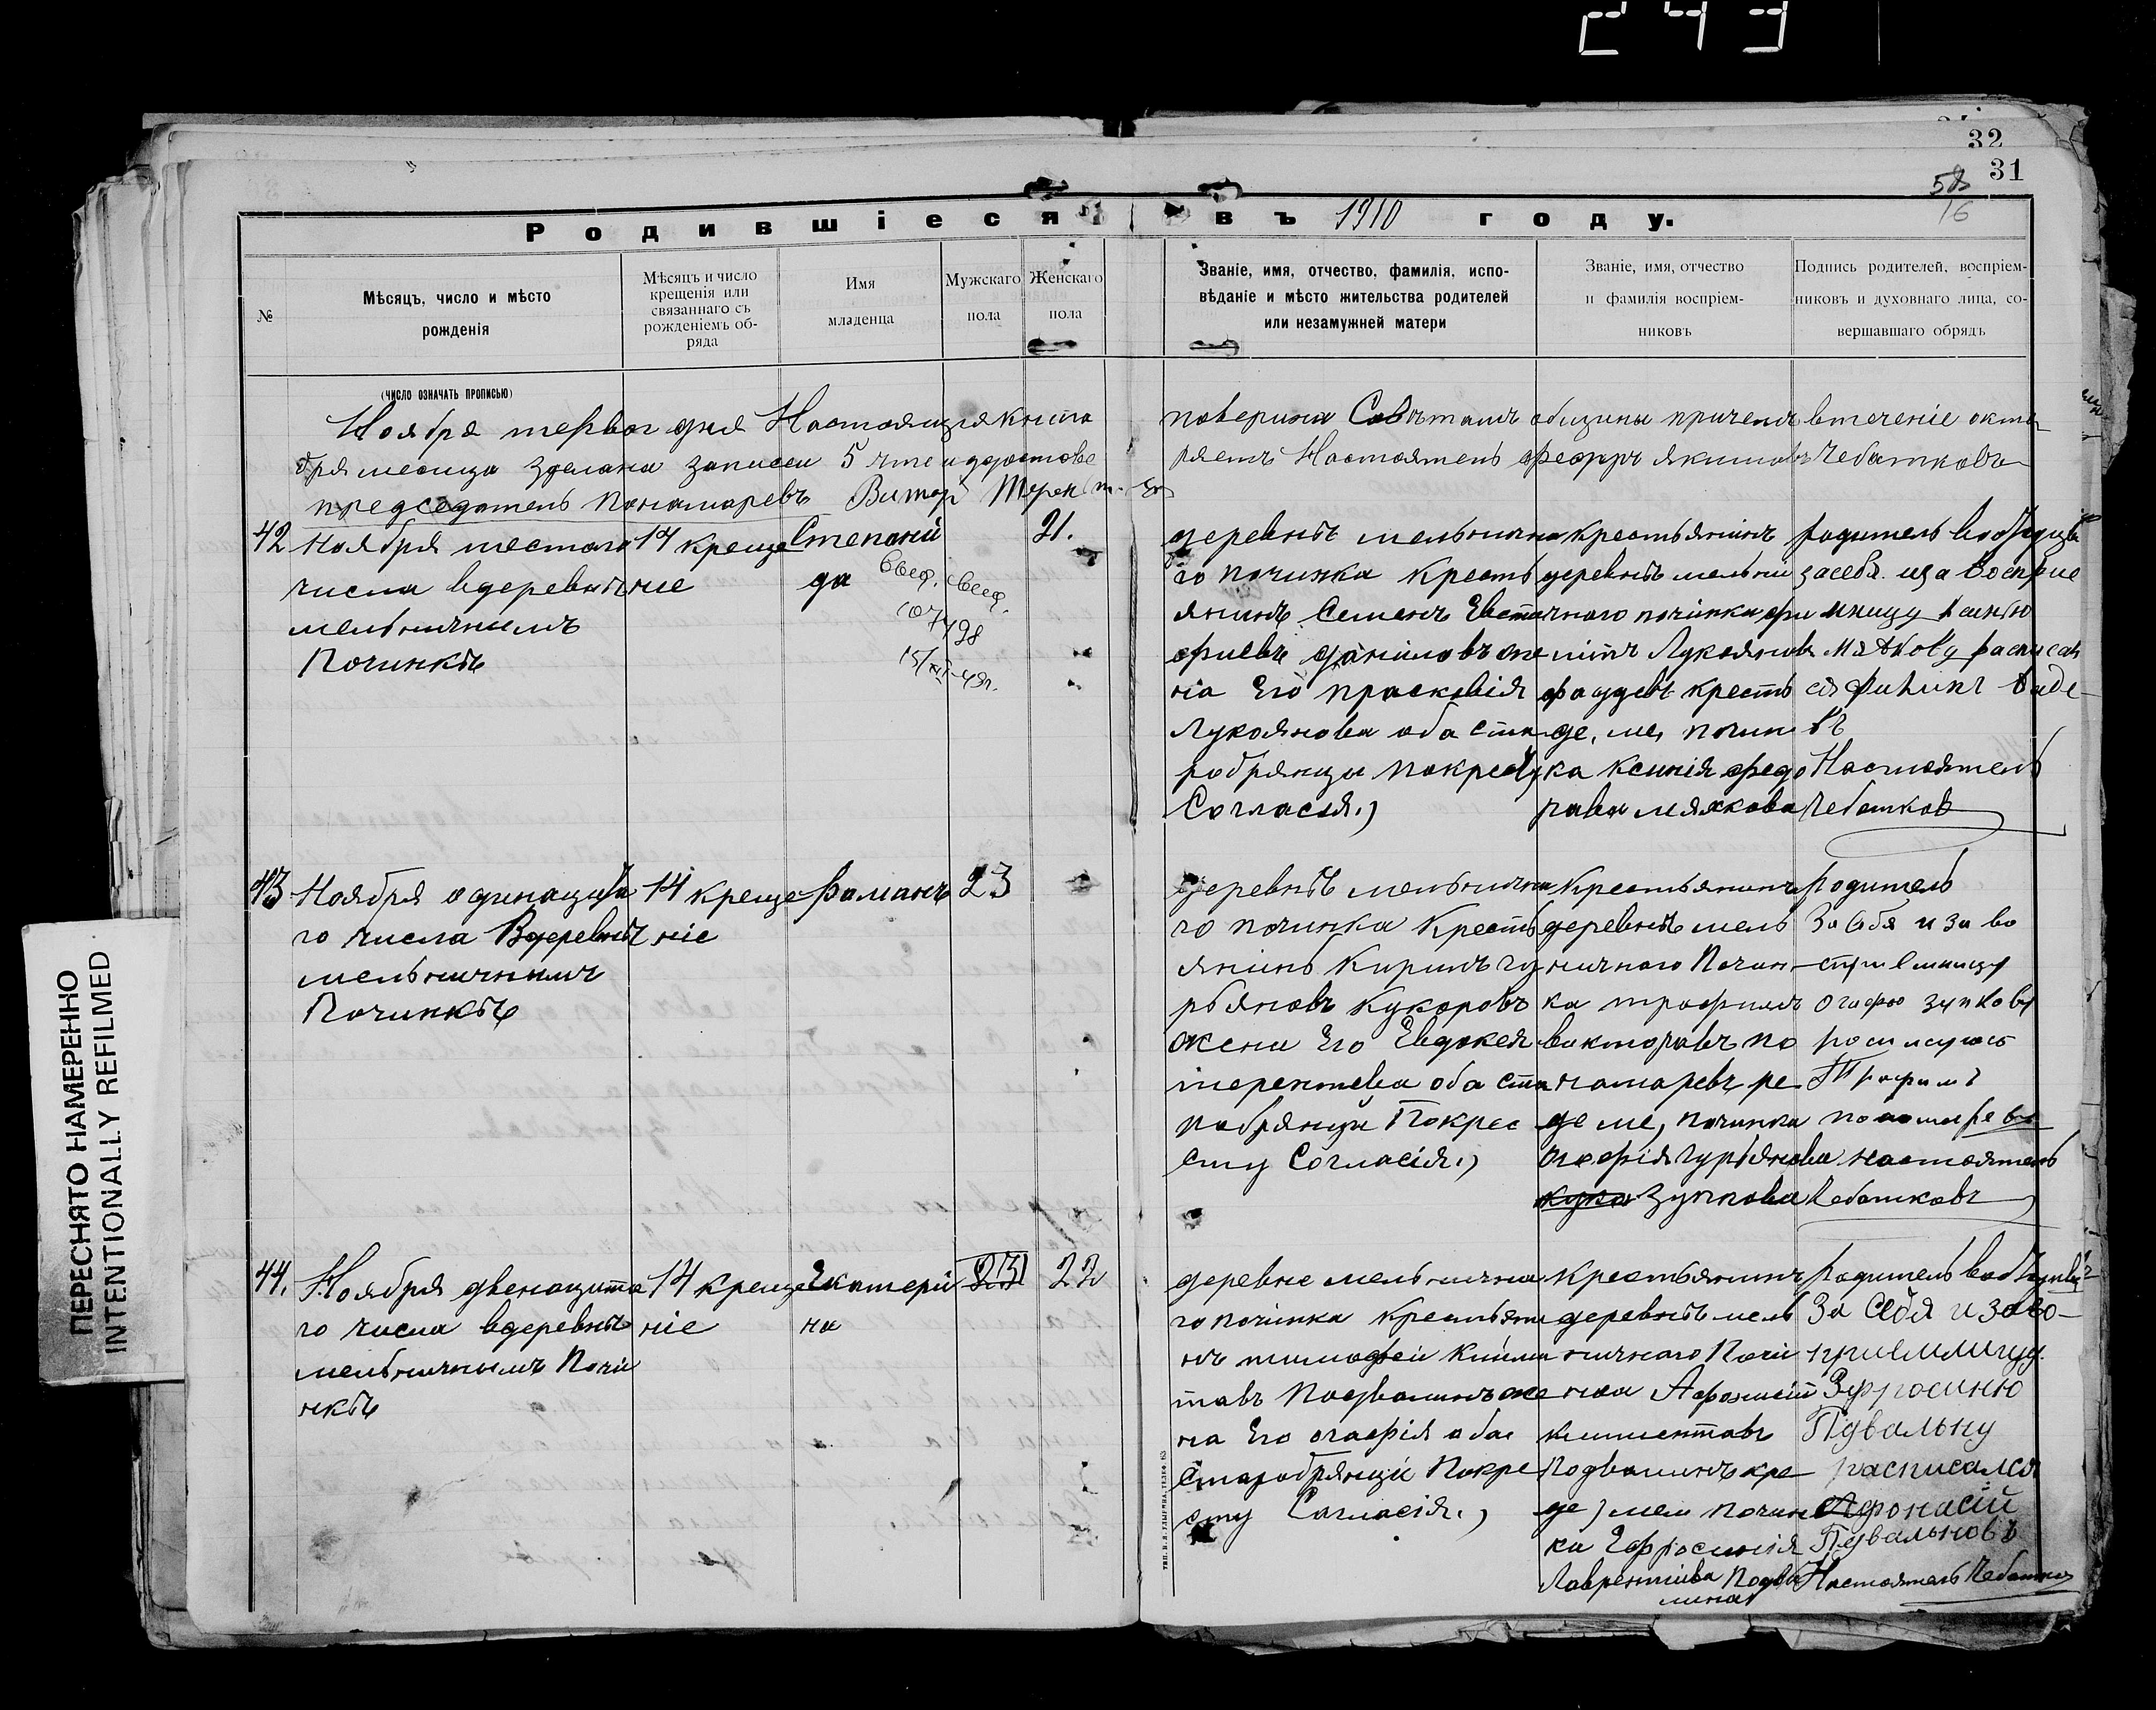 243
32
31
58
16
Родившіеся въ 1910 году.
№
Мѣсяцъ, число и мѣсто
рожденія
Мѣсяцъ и число
крещенія или
связаннаго съ
рожденіемъ об-
ряда
Имя
младенца
Мужскаго
пола
Женскаго
пола
Званіе, имя, отчество, фамилія, испо-
вѣданіе и мѣсто жительства родителей
или незамужней матери
Званіе, имя, отчество
и фамилія воспріем-
никовъ
Подпись родителей, воспріем-
никовъ и духовнаго лица, со-
вершавшаго обрядъ
(число означать прописью)
Ноября первог дня Настоящія книга
бря месяца зделана записеи 5 что и удостове
председатель Пономаревъ
поверина Советамъ общины причемъ втеченіе октя
ряетъ Настоятель Чебатковъ
42
Ноября шестаго
числа вдеревнѣ
мельничнымъ
Починкѣ
14 креще
ніе
Степани
да
107498
21.
деревнѣ мельнична
го починка кресть
янинъ Семенъ Евста
фиевъ даниловъ же
на Его прасковія
Лукоянова оба ста
робрянцы покресту
Согласія.)
крестьянинъ
деревнѣ мельни
чного починка фи
липъ Лукоянов
крестъ
де, ме, почин
ка Ксинія федо
рава мяхкова
родитель
за себя и за восприе
мницу Ксинью
Мяхкову расписал
ся филипъ
Настоятель
Чебатков
43
Ноября одинацата
го числа Вдеревнѣ
мельничнымъ
Починкѣ
14 креще
ніе
Романъ
23
деревнѣ мельнична
го починка Кресть
янинъ Кирилъ гу
рьяновъ Кукоровъ
жена Его Евдокея
терентева оба ста
робрянцы Покрес
сту Согласія.)
Крестьянинъ
деревнѣ мель
ничного Почин
ка трофимъ
викторавъ по
намаревъ
де ме, починка
огафія гурьянова
куко зупкова
Родитель
За себя и за во
сприемницу
Огафю зупкову
росписуюсь
Трофимъ
пономаревъ
настоятель
Чебатковъ
44.
Ноября двенацата
го числа вдеревнѣ
мельничнымъ Почи
нкѣ
14 креще
ніе
Екатери
на
23
22
деревне мельнична
го починка крестьяни
нъ тимофеи Клими
тавъ Подвалинъ же
на Его огафія оба
старобрянци Покре
сту Согласія.)
Крестьянинъ
деревнѣ мель
ничного Почи
нка Афонасіи
климентавъ
Подвалинъ кре
де) мел почин
ка Ефросинія
Лаврентиева Подва
лина
Родитель
За Себя и за во-
приемницу
Эфросиню
Пдвальну
расписался
Афонасій
Пдвальновъ
Настоятель Чебатков
ПЕРЕСНЯТО НАМЕРЕННО
INTENTIONALLY REFILMED